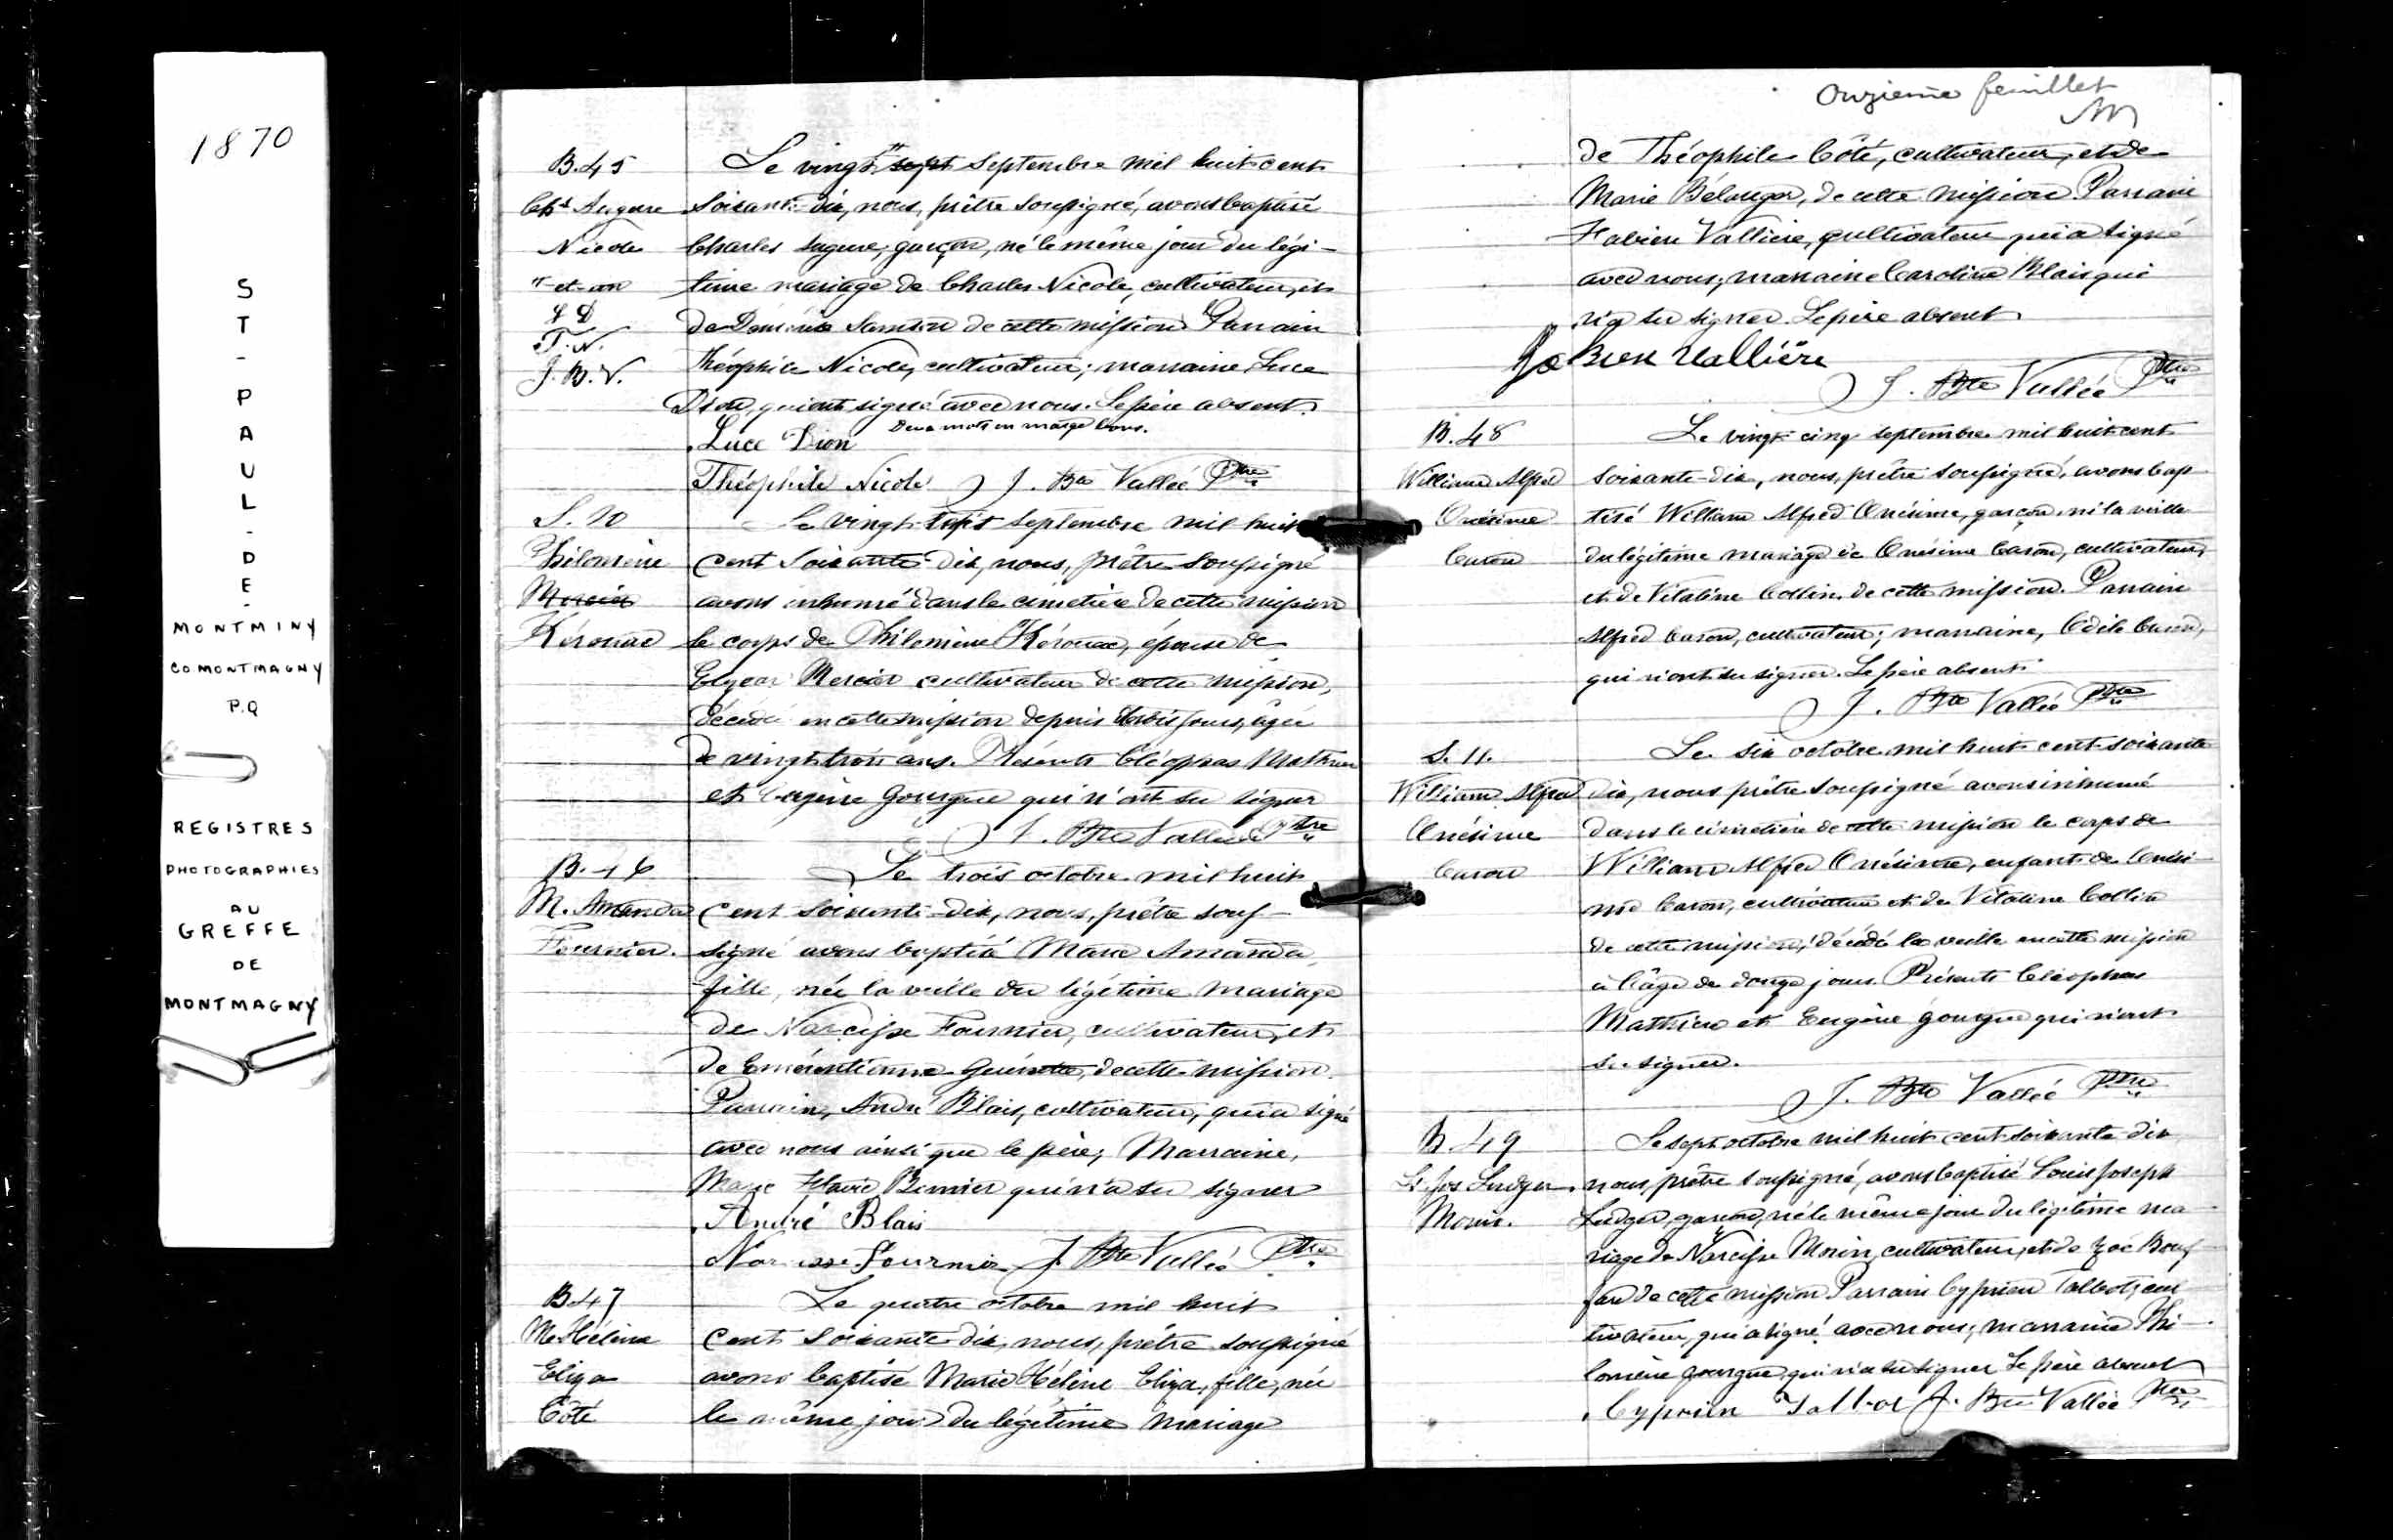 1870
ST-PAUL-DE-
MONTMINY
CO MONTMAGNY
P.Q
REGISTRES
PHOTOGRAPHIES
AU
GREFFE
DE
MONTMAGNY
B.45
Chs Eugene
Nicole
"et-un
L D
T. N.
J. B. V.
Le vingt " sept septembre mil huit cent
soixante-dix, nous, prêtre soussigné, avons baptisé
Charles Eugene, garçon, né le même jour du légi-
time mariage de Charles Nicole, cultivateur, et
de Samson de cette mission Parrain
Théophile Nicole, cultivateur; marraine Luce
Dion, qui ont signé avec nous. Le père absent.
Deux mots en marge bons.
Luce Dion
Théophile Nicole J. Bte Vallée Ptre
S. 10
Philomène
Mercier
Kérouac
Le vingt sept septembre mil huit
cent soixante-dix, nous, prêtre soussigné
avons inhumé dans le cimetière de cette mission
le corps de Philomène Kérouac, épouse de
Elzear Mercier cultivateur de cette mission,
décédée en cette mission depuis trois jours, âgée
de vingt trois ans. Présents Cléophas Mathieu
et Eugène Gourgue qui n'ont su signer
J. Bte Vallée Ptre
B. 46
M. Amanda
Fournier.
Le trois octobre mil huit
cent soixante-dix, nous, prêtre sous-
signé avons baptisé Marie Amanda,
fille, née la veille du légitime mariage
de Narcisse Fournier, cultivateur, et
de Émérentienne Guérette, de cette mission.
Parrain, André Blais, cultivateur, qui a signé
avec nous ainsi que le père; Marraine,
Marie Flavie Bernier qui n'a su signer
André Blais
Narcisse Fournier J. Bte Vallée Ptre
B.47
M. Hélène
Eliza
Côté
Le quatre octobre mil huit
cent soixante-dix, nous, prêtre soussigné
avons baptisé Marie Hélène Eliza, fille, née
le même jour du légitime mariage
Onzième feuillet
de Théophile Côté, cultivateur, et de
Marie Bélanger, de cette mission. Parrain
Fabien Vallière, cultivateur qui a signé
avec nous; marraine Caroline Blais qui
n'a su signer. Le père absent
Fabien Vallière
J. Bte Vallée Ptre
B. 48
William Alfred
Onésime
Caron
Le vingt-cinq septembre mil huit cent
soixante-dix, nous, prêtre soussigné, avons bap
tisé William Alfred Onésime, garçon, né la veille
du légitime mariage de Onésime Caron, cultivateur,
et de Vitaline Collin, de cette mission. Parrain
Alfred Caron, cultivateur; marraine, Odile Caron,
qui n'ont su signer. Le père absent
J. Bte Vallée Ptre
S. 11.
William Alfred
Onésime
Caron
Le six octobre mil huit cent soixante
dix, nous prêtre soussigné avons inhumé
dans le cimetière de cette mission le corps de
William Alfred Onésime, enfant de Onési-
me Caron, cultivateur et de Vitaline Collin
de cette mission, décédé la veille en cette mission
à l'âge de douze jours. Présents Cléophas
Mathieu et Eugène Gourgue qui n'ont
su signer.
J. Bte Vallée Ptre
B. 49
Ls Jos Ludger
Morin.
Le sept octobre mil huit cent soixante-dix
nous, prêtre soussigné, avons baptisé Louis Joseph
Ludger, garçon, né le même jour du légitime ma
riage de Narcisse Morin, cultivateur, et de Zoé Bouf
fard de cette mission Parrain Cyprien Talbot, cul
tivateur, qui a signé avec nous; marraine Phi-
lomène Gourgue, qui n'a su signer Le père absent
Cyprien Talbot J. Bte Vallée Ptre